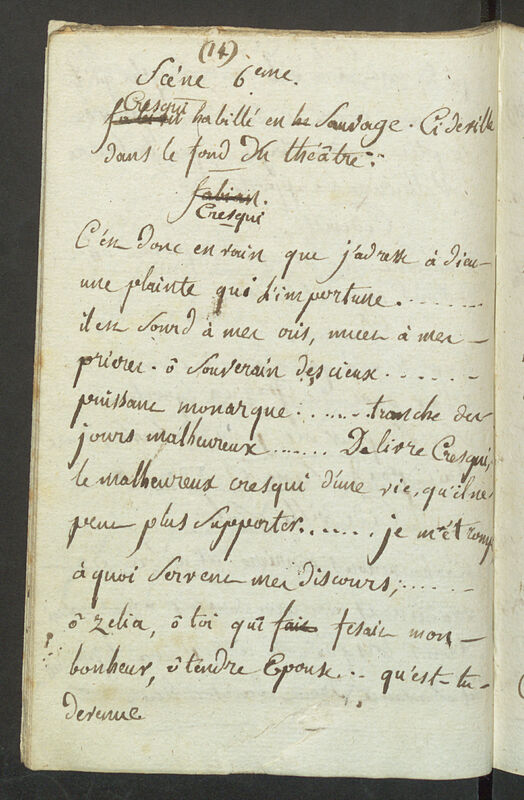 (14)
Scéne 6eme.
Cresqui
fabian habillé en Sauvage. Cideville
dans le fond du théâtre.
fabian.
Cresqui
C'est donc en vain que j'adresse à dieu
une plainte qui l'importune. . . . . . .
il est sourd à mes cris, muet à mes
prieres. ô Souverain des cieux . . . . . .
puissant monarque . . . . . . . tranche des
jours malheureux . . . . . . Delivre Cresqui,
le malheureux cresqui d'une vie, qu'il ne
peut plus Supporter. . . . . . . je m'étromp
à quoi servent mes discours, . . . . . .
ô Zelia, ô toi qui fait fesait mon
bonheur, ô tendre Epouse . . qu'est-tu-
devenue